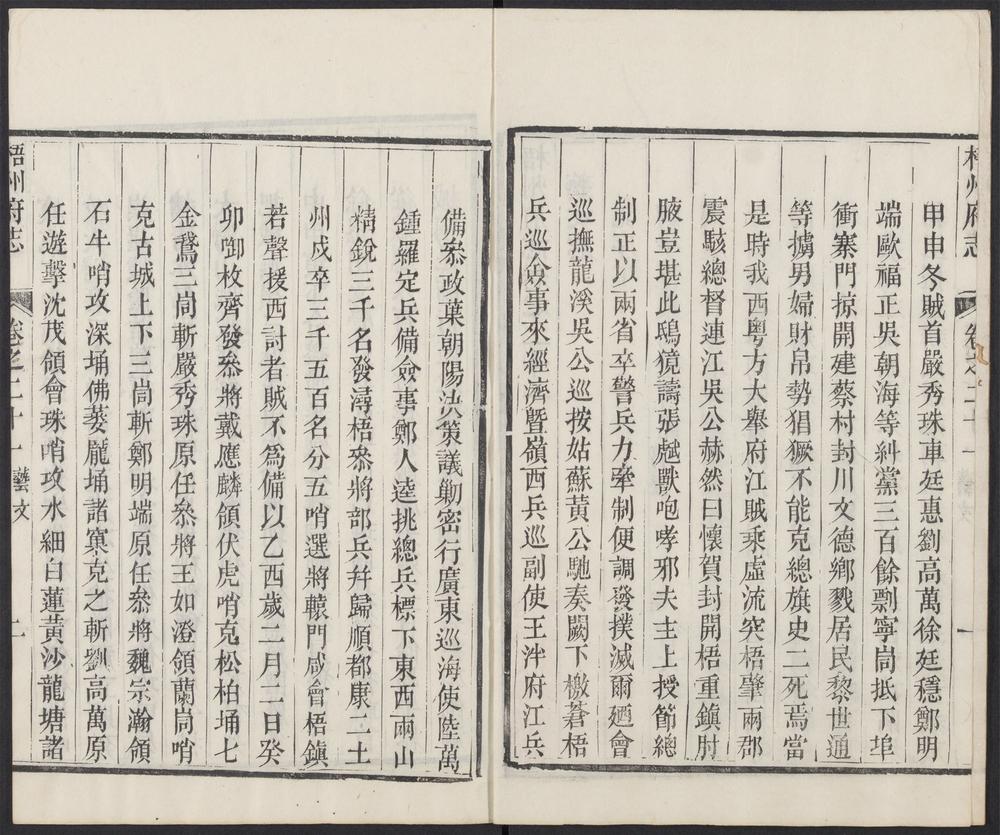 梧州府志
卷之二十一
甲申冬賊首嚴秀珠車廷惠劉高萬徐廷穩鄭明
端歐福正吳朝海等糾黨三百餘剽寧峝抵下埠
衝寨門掠開建蔡村封川文德鄉戮居民黎世通
等擄男婦財帛勢猖獗不能克總旗史二死焉當
是時我西粵方大舉府江賊乘虛流突梧肇兩郡
震駭總督連江吳公赫然曰懷賀封開梧重鎮肘
腋豈堪此鴟獍譸張虣獸咆哮邪夫主上授節總
制正以兩省卒警兵力牽制便調發撲滅爾廼會
巡撫龍溪吳公巡按姑蘇黃公馳奏闕下檄蒼梧
兵巡僉事來經濟暨嶺西兵巡副使王泮府江兵
備叅政葉朝陽決策議勦密行廣東巡海使陸萬
鍾羅定兵備僉事鄭人逵挑總兵標下東西兩山
精銳三千名發潯梧叅將部兵并歸順都康二土
州戍卒三千五百名分五哨選將轅門咸會梧鎮
若聲援西討者賊不爲備以乙酉歲二月二日癸
卯啣枚齊發叅將戴應麟領伏虎哨克松柏埇七
金鵞三峝斬嚴秀珠原任叅將王如澄領蘭峝哨
克古城上下三峝斬鄭明端原任叅將魏宗瀚領
石牛哨攻深埇佛菱龐埇諸寨克之斬劉高萬原
任遊擊沈茂領會珠哨攻水細白蓮黃沙龍塘諸
梧州府志
卷之二十一 藝文
二